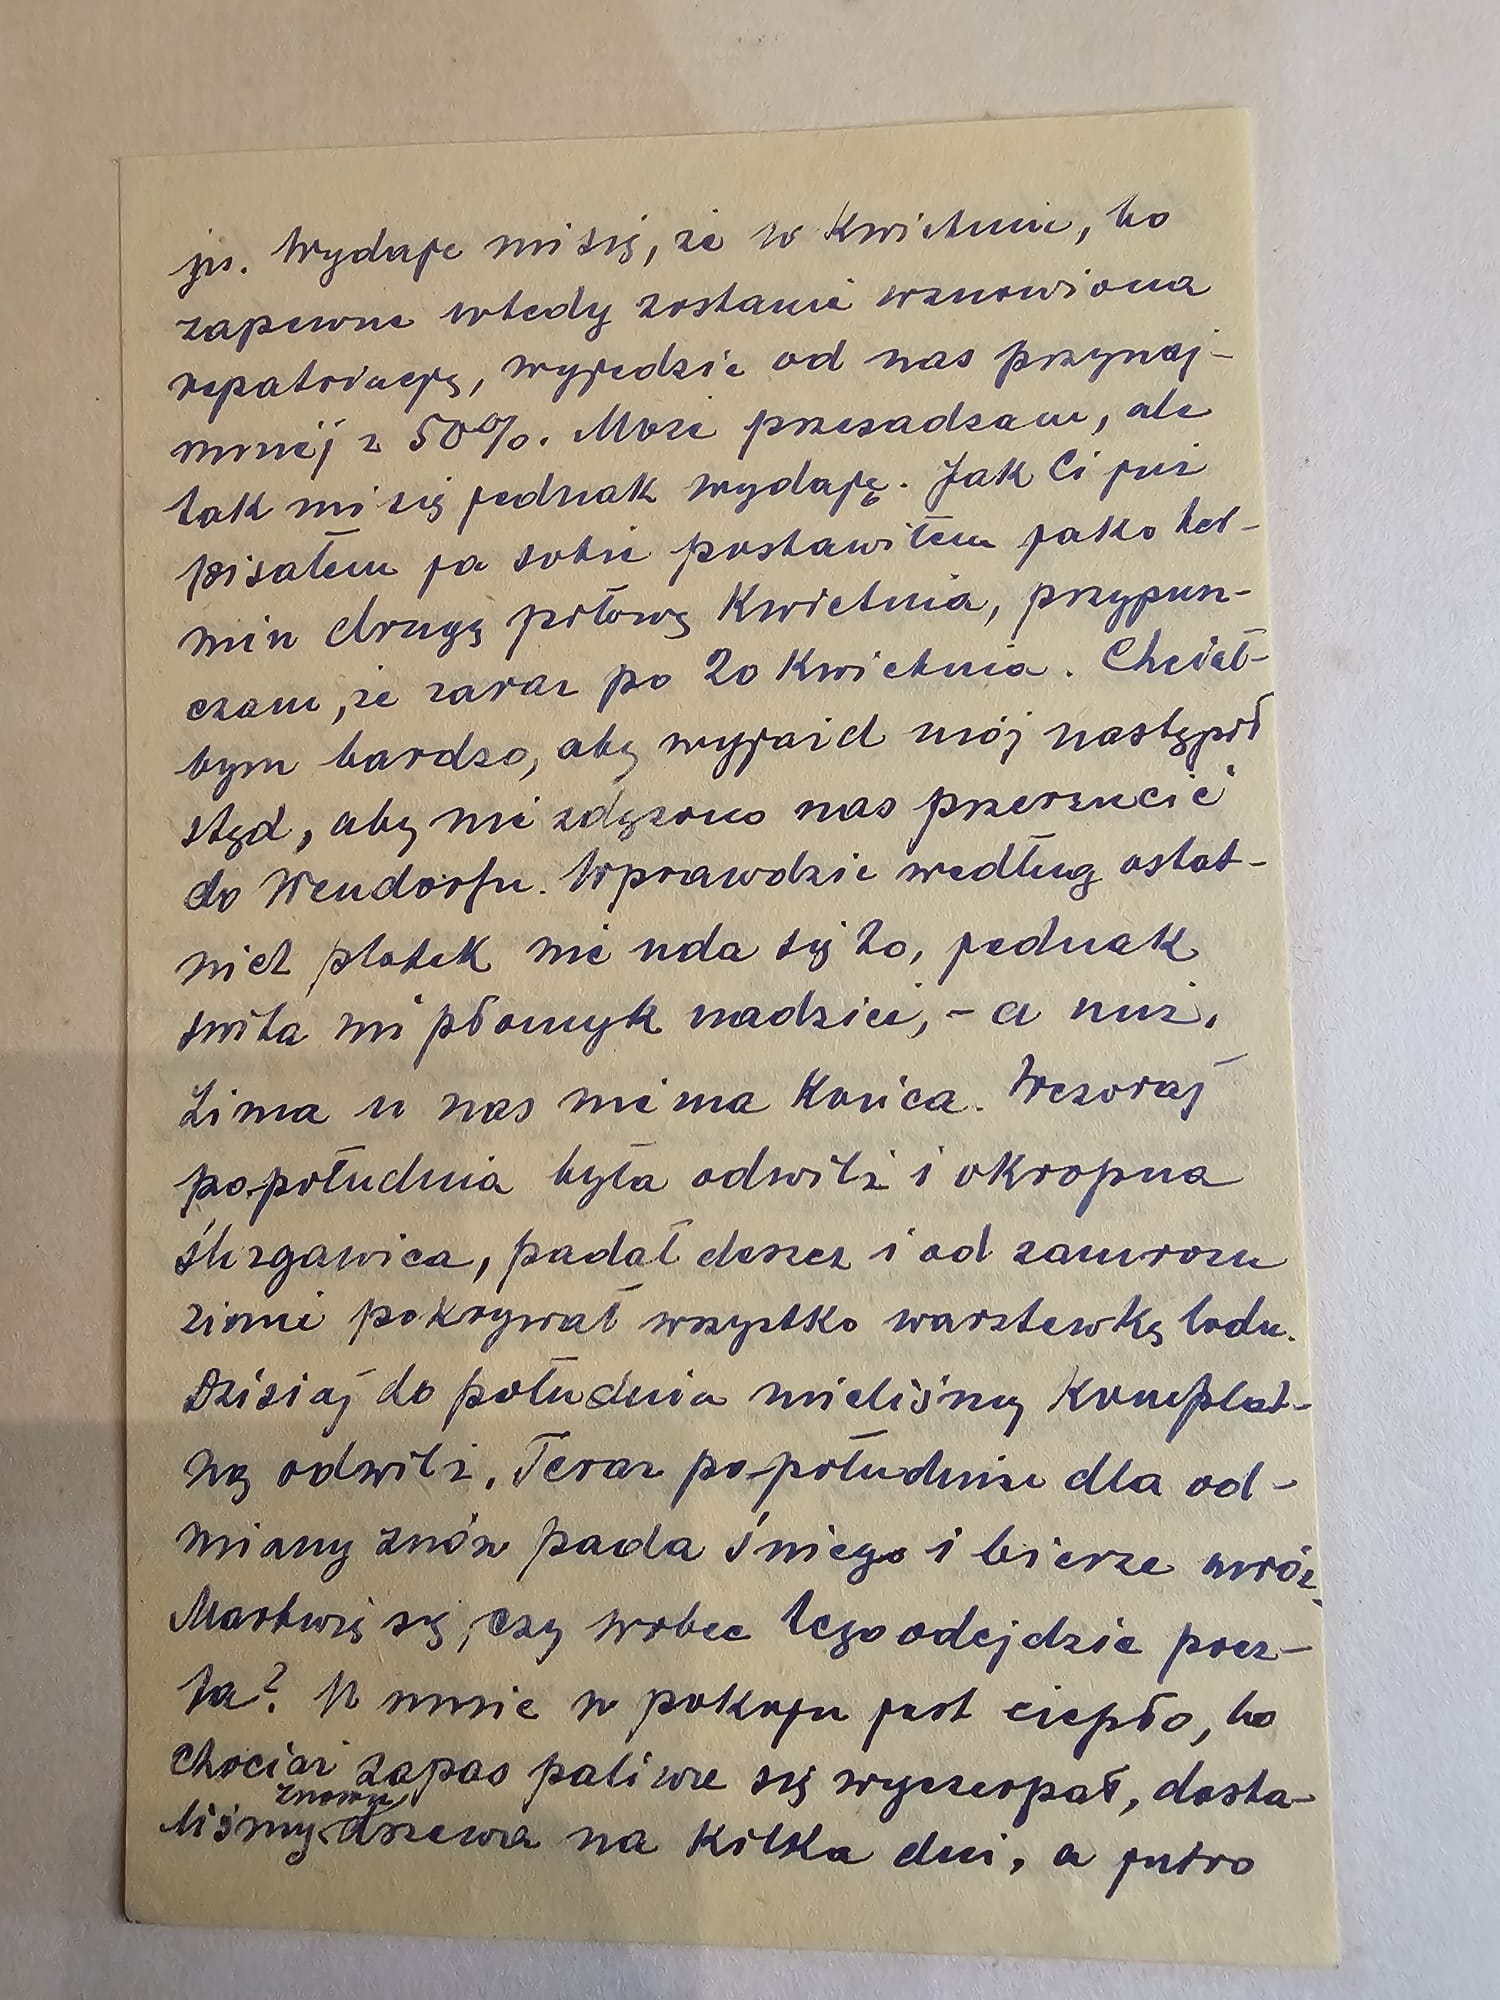 ju. Wydaje mi się, że w Kwietniu, bo
zapewne wtedy zostanie wznowiona
repatriacja, wyjedzie od nas przynaj-
mniej z 50%. Może przesadzam, ale
tak mi się jednak wydaję. Jak Ci już
pisałem ja sobie postawiłem jako ter-
min drugą połowę Kwietnia, przypusz-
czam, że zaraz po 20 Kwietnia. Chciał-
bym bardzo, aby wyjazd mój nastąpił
stąd, aby nie zdążono nas przerzucić
do Wendorfu. Wprawdzie według ostat-
nich plotek nie uda się to, jednak
świta mi płomyk nadziei, - a nuż.
Zima u nas nie ma Końca. Wczoraj
popołudnia była odwilż i okropna
ślizgawica, padał deszcz i od zamrozu
ziemi pokrywał wszystko warstewką lodu.
Dzisiaj do południa mieliśmy Komplet-
ną odwilż. Teraz po-południu dla od-
miany znów pada śniego i bierze mróz.
Martwię się, czy wobec tego odejdzie pocz-
ta? U mnie w pokoju jest ciepło, bo
chociaż zapas paliwa się wyczerpał, dosta-
liśmy znowu drzewa na Kilka dni, a jutro